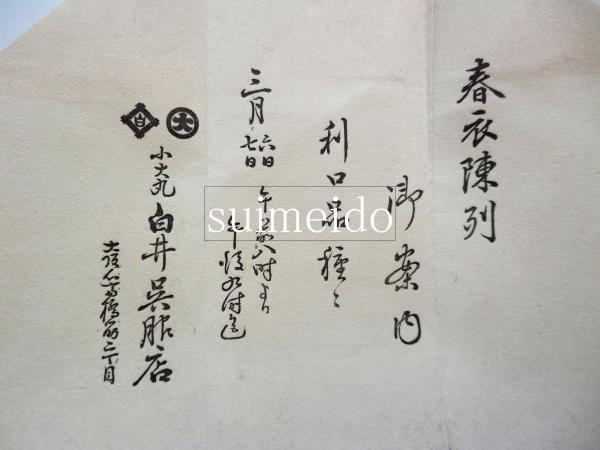 春衣陳列
御案内
利口品種々
三月六日七日
午前八時より
午後九時迄
大
白
小大丸
白井呉服店
大阪心斎橋筋二丁目
suimeido